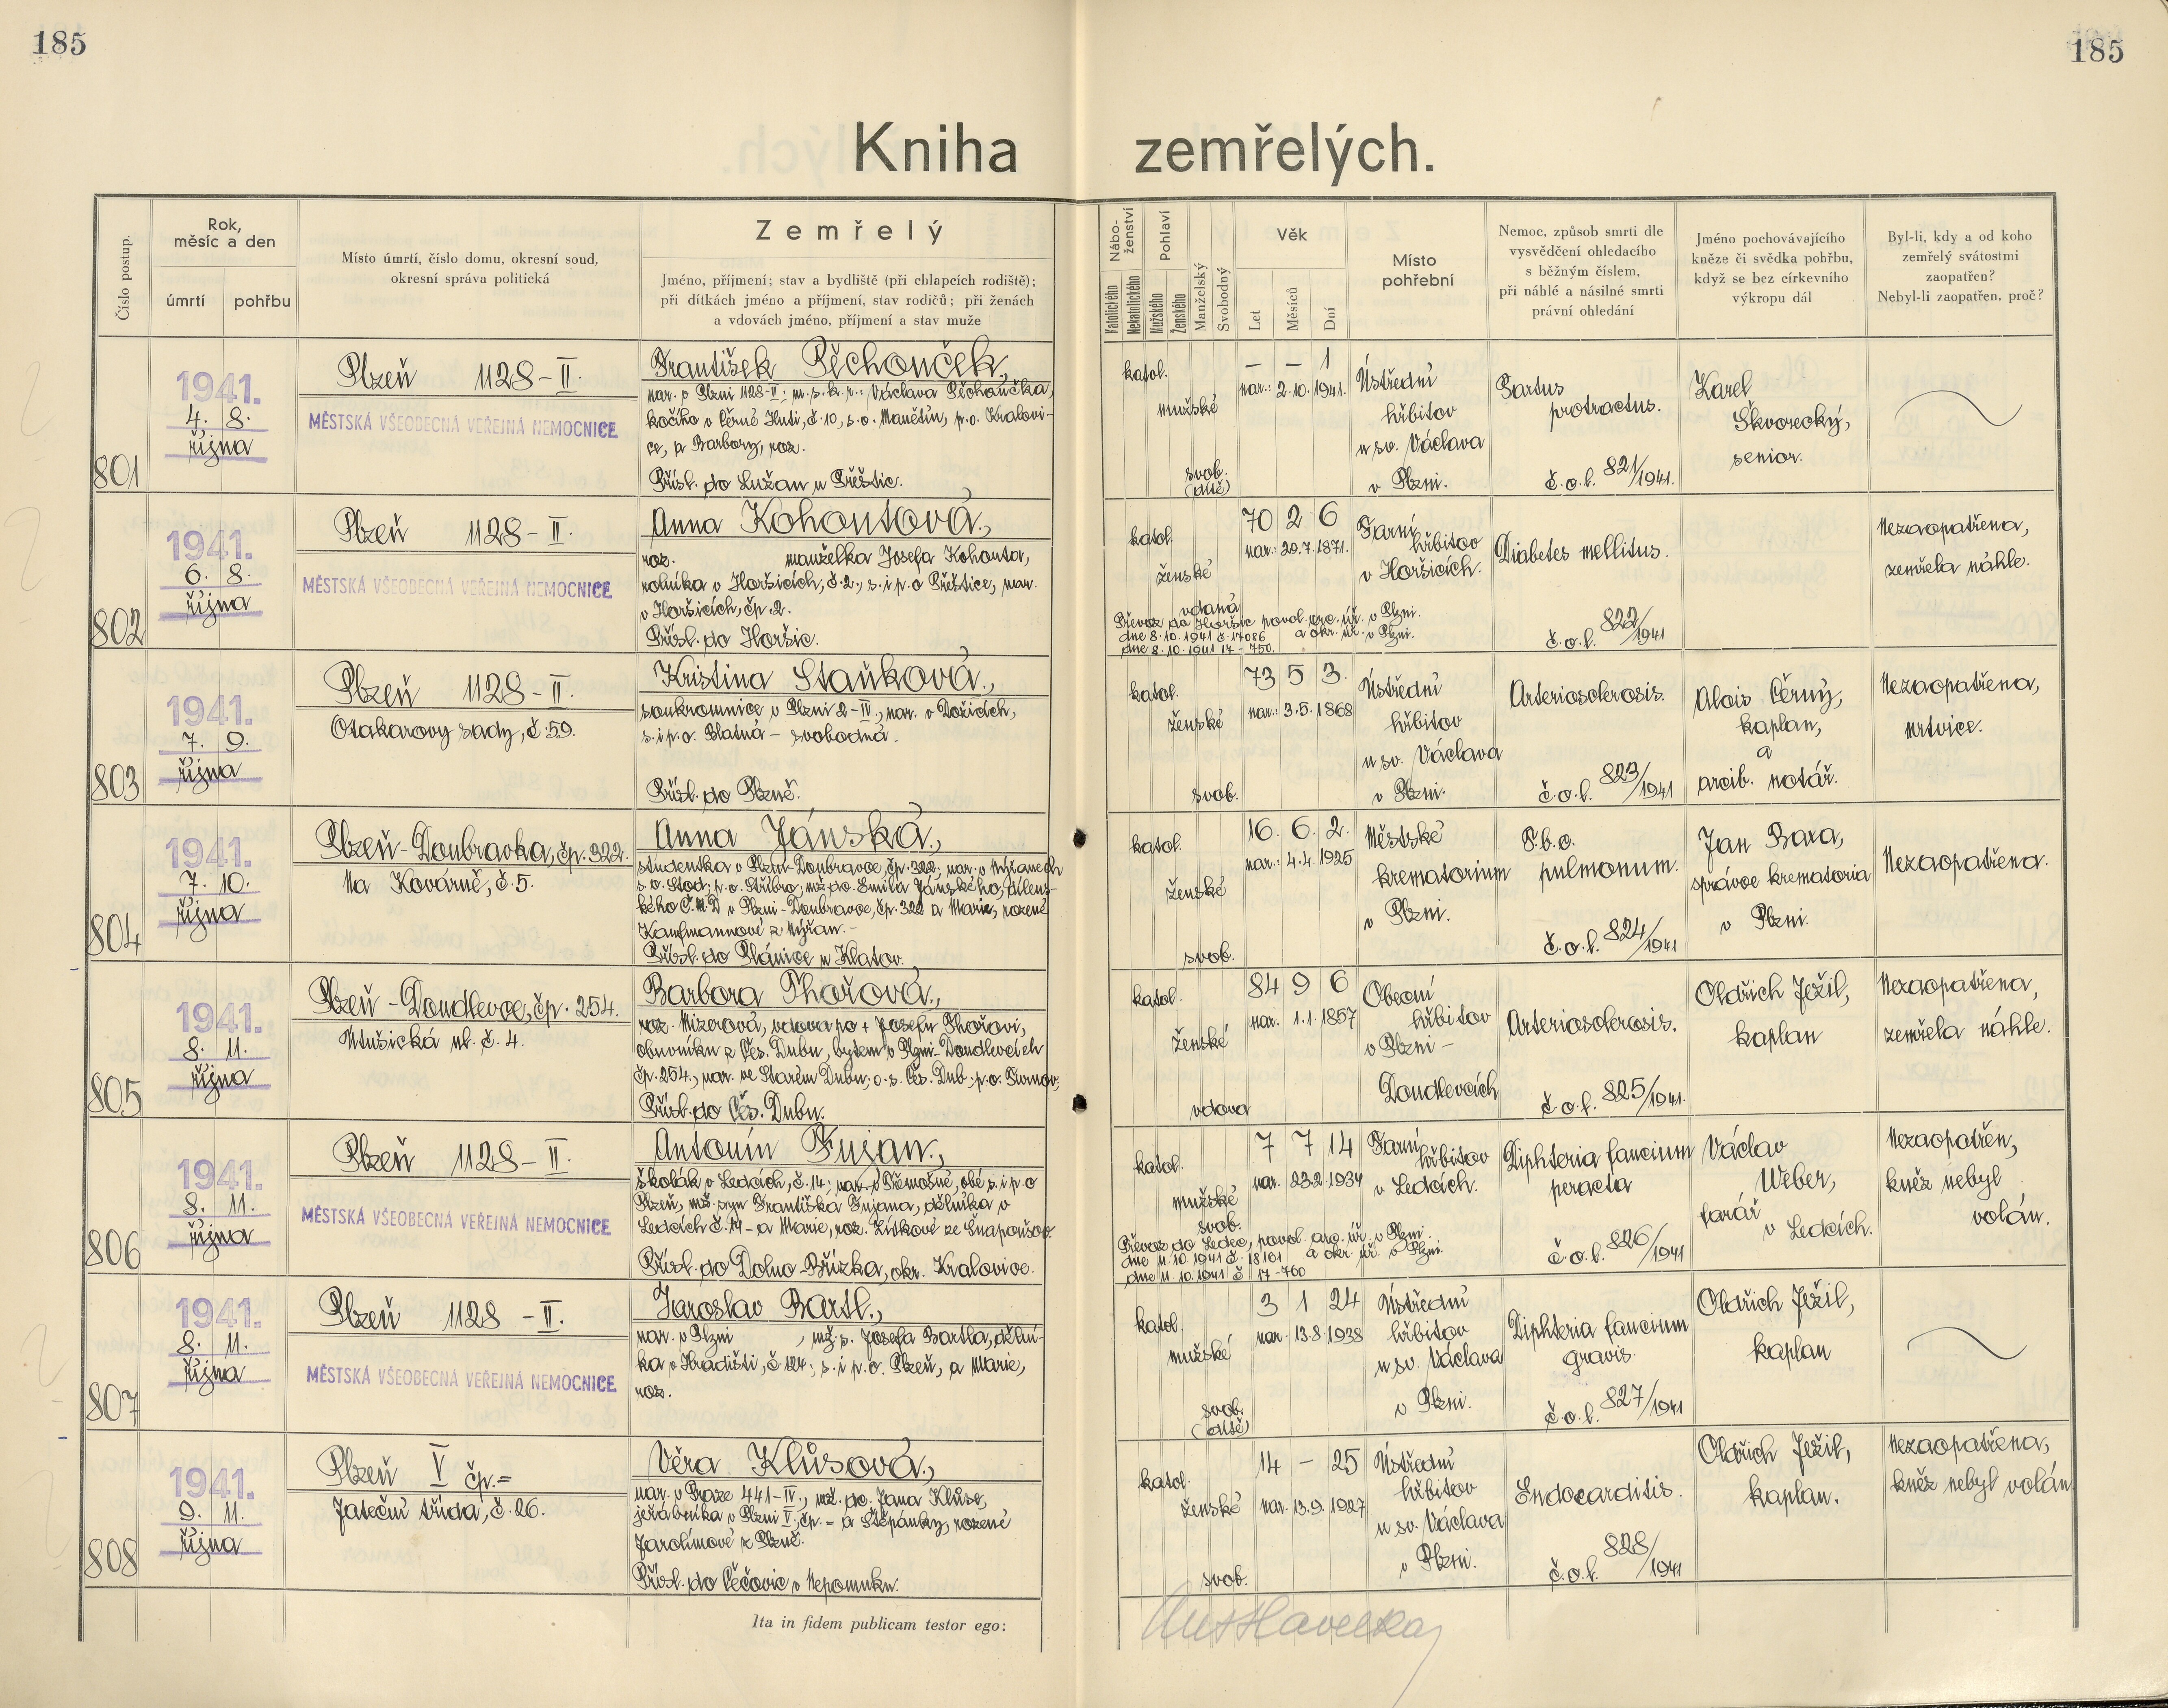 185
185
Kniha zemřelých.
Číslo postup.
Rok,
měsíc a den
úmrtí
pohřbu
Místo úmrtí, číslo domu, okresní soud,
okresní správa politická
Zemřelý
Jméno, příjmení; stav a bydliště (při chlapcích rodiště);
při dítkách jméno a příjmení, stav rodičů; při ženách
a vdovách jméno, příjmení a stav muže
Nábo-
ženství
Katolického
Nekatolického
Pohlaví
Mužského
Ženského
Manželský
Svobodný
Věk
Let
Měsíců
Dní
Místo
pohřební
Nemoc, způsob smrti dle
vysvědčení ohledacího
s běžným číslem,
při náhlé a násilné smrti
právní ohledání
Jméno pochovávajícího
kněze či svědka pohřbu,
když se bez církevního
výkropu dál
Byl-li, kdy a od koho
zemřelý svátostmi
zaopatřen?
Nebyl-li zaopatřen, proč?
801
1941.
4. 8.
října
Plzeň 1128-II.
MĚSTSKÁ VŠEOBECNÁ VEŘEJNÁ NEMOCNICE
František Pěchouček,
nar. v Plzni 1128-II; m.s.k.r.: Václava Pěchoučka,
kočího v Černé Huti, č.10, s.o. Manětín, p.o. Kralovi-
ce, a Barbory, roz.
Přísl. do Lužan u Přeštic.
katol.
mužské
svob.
(dítě)
– – 1
nar.: 2.10.1941.
Ústřední
hřbitov
u sv. Václava
v Plzni.
Partus
protractus.
č.o.l. 821/1941.
Karel
Škvorecký,
senior.
802
1941.
6. 8.
října
Plzeň 1128-II.
MĚSTSKÁ VŠEOBECNÁ VEŘEJNÁ NEMOCNICE
Anna Kohoutová,
roz. manželka Josefa Kohouta,
rolníka v Horšicích, č.2., s. i p.o Přeštice, nar.
v Horšicích, čp.2.
Přísl. do Horšic.
katol.
ženské
vdaná
70 2 6
nar.: 29.7.1871.
Farní
hřbitov
v Horšicích.
Převoz do Horšic povol. arc. úř. v Plzni.
dne 8.10.1941 č.17086 a okr. úř. v Plzni.
dne 8.10.1941 17-750.
Diabetes mellitus.
č.o.l. 822/1941
Nezaopatřena,
zemřela náhle.
803
1941.
7. 9.
října
Plzeň 1128-II.
Otakarovy sady, č.59.
Kristina Staňková,
soukromnice v Plzni 2-IV., nar. v Dožicích,
s. i p.o. Blatná – svobodná.
Přísl. do Plzně.
katol.
ženské
svob.
73 5 3.
nar.: 3.5.1868
Ústřední
hřbitov
u sv. Václava
v Plzni.
Arteriosclerosis.
č.o.l. 823/1941
Alois Černý,
kaplan,
a
arcib. notář.
Nezaopatřena,
mrtvice.
804
1941.
7. 10.
října
Plzeň-Doubravka, čp.322.
Na Kovárně, č.5.
Anna Jánská,
studentka v Plzni-Doubravce, čp.322, nar. v Nýřanech
s.o. Stod, p.o. Stříbro; mž. dc. Emila Jánského, dílens-
kého Č.M.D v Plzni-Doubravce, čp.322 a Marie, rozené
Kaufmannové z Nýřan.-
Přísl. do Plánice u Klatov.
katol.
ženské
svob.
16. 6. 2.
nar.: 4.4.1925
Městské
krematorium
v Plzni.
T.b.c.
pulmonum.
č.o.l. 824/1941
Jan Baxa,
správce krematoria
v Plzni.
Nezaopatřena.
805
1941.
8. 11.
října
Plzeň-Doudlevce, čp. 254.
Útušická ul. č. 4.
Barbora Thořová,
roz. Mizerová, vdova po + Josefu Thořovi,
obuvníku z Čes. Dubu, bytem v Plzni-Doudlevcích
čp.254., nar. ve Starém Dubu; o.s. Čes. Dub, p.o. Turnov,
Přísl. do Čes. Dubu.
katol.
ženské
vdova
84 9 6
nar. 1.1.1857
Obecní
hřbitov
v Plzni-
Doudlevcích
Arteriosclerosis.
č.o.l. 825/1941.
Oldřich Ježil,
kaplan
Nezaopatřena,
zemřela náhle.
806
1941.
8. 11.
října
Plzeň 1128-II.
MĚSTSKÁ VŠEOBECNÁ VEŘEJNÁ NEMOCNICE
Antonín Fujan,
školák v Ledcích, č.14; nar. v Třemošné, obé s. i p.o
Plzeň, mž. syn Františka Fujana, dělníka v
Ledcích č.14 – a Marie, roz. Zítkové ze Šnapoušov.
Přísl. do Dolno-Břízka, okr. Kralovice.
katol.
mužské
svob.
7 7 14
nar. 23.2.1934
Farní
hřbitov
v Ledcích.
Převoz do Ledec, povol. arc. úř. v Plzni.
dne 11.10.1941 č. 18101 a okr. úř. v Plzni.
dne 11.10.1941 č 17-760
Diphteria faucium
peracta
č.o.l. 826/1941
Václav
Weber,
farář
v Ledcích.
Nezaopatřen,
kněz nebyl
volán.
807
1941.
8. 11.
října
Plzeň 1128-II.
MĚSTSKÁ VŠEOBECNÁ VEŘEJNÁ NEMOCNICE
Jaroslav Bartl,
nar. v Plzni , mž.s. Josefa Bartla, dělní-
ka v Hradišti, č.124, s. i p.o. Plzeň, a Marie,
roz.
katol.
mužské
svob.
(dítě)
3 1 24
nar. 13.8.1938
Ústřední
hřbitov
u sv. Václava
v Plzni.
Diphteria faucium
gravis.
č.o.l. 827/1941
Oldřich Ježil,
kaplan
808
1941.
9. 11.
října
Plzeň V čp.=
Jateční třída, č.26.
Věra Klůsová,
nar. v Praze 441-IV., mž. dc. Jana Klůse,
jeřábníka v Plzni V, čp. = a Štěpánky, rozené
Jarolímové z Plzně.
Přísl. do Čečovic u Nepomuku.
katol.
ženské
svob.
14 – 25
nar. 13.9.1927
Ústřední
hřbitov
u sv. Václava
v Plzni.
Endocarditis.
č.o.l. 828/1941
Oldřich Ježil,
kaplan.
Nezaopatřena,
kněz nebyl volán
Ita in fidem publicam testor ego:
Ant Havelka